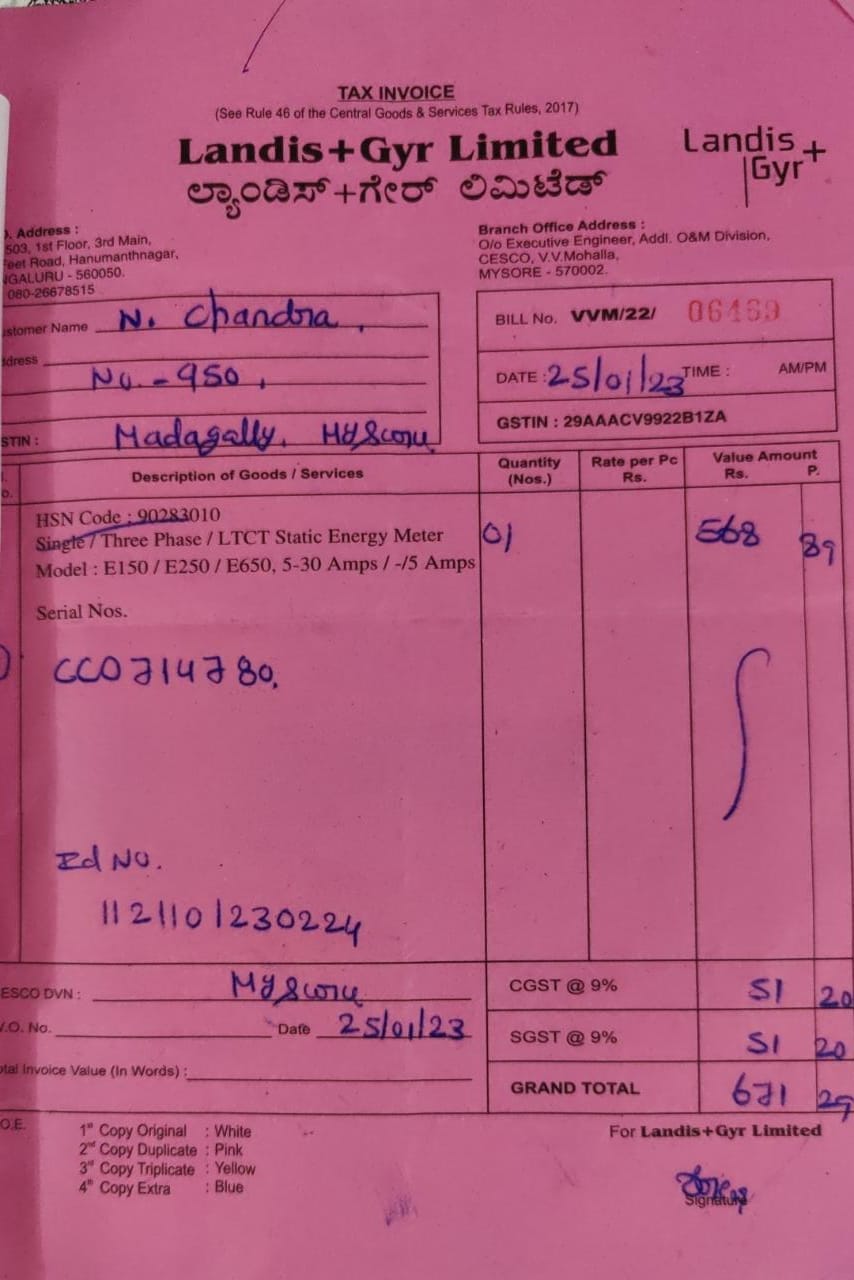 TAX INVOICE
(See Rule 46 of the Central Goods & Services Tax Rules, 2017)
Landis+Gyr Limited
ಲ್ಯಾಂಡಿಸ್+ಗೇರ್ ಲಿಮಿಟೆಡ್
Landis+
Gyr
Address :
503, 1st Floor, 3rd Main,
Road, Hanumanthnagar,
GALURU - 560050.
080-26678515
Branch Office Address :
O/o Executive Engineer, Addl. O&M Division,
CESCO, V.V.Mohalla,
MYSORE - 570002.
stomer Name N. Chandra,
dress
No. - 950,
STIN : Madagally, Mysore
BILL No. VVM/22/ 06469
DATE : 25/01/23 TIME : AM/PM
GSTIN : 29AAACV9922B1ZA
Description of Goods / Services Quantity (Nos.) Rate per Pc Rs. Value Amount Rs. P.
HSN Code : 90283010
Single / Three Phase / LTCT Static Energy Meter 01 568 89
Model : E150 / E250 / E650, 5-30 Amps / -/5 Amps
Serial Nos.
CC0714780.
Id No.
1121101230224
ESCO DVN : Mysore
CGST @ 9% 51 20
.O. No. Date 25/01/23
SGST @ 9% 51 20
tal Invoice Value (In Words) :
GRAND TOTAL 671 29
O.E.
1st Copy Original : White
2nd Copy Duplicate : Pink
3rd Copy Triplicate : Yellow
4th Copy Extra : Blue
For Landis+Gyr Limited
Signature